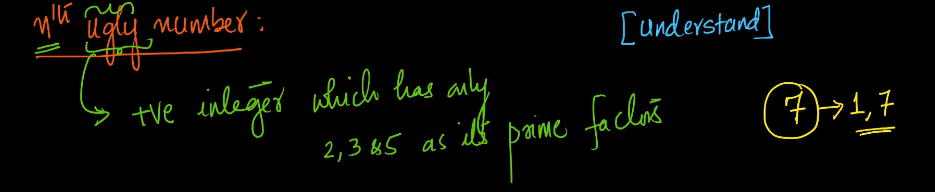 nth ugly number :
[understand]
+ve integer which has only
2, 3 & 5 as its prime factors
7 → 1, 7